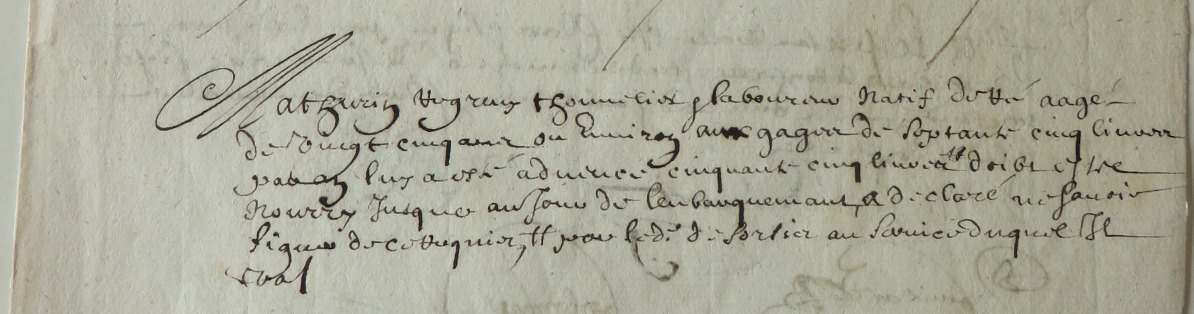 Mathurin Regreny thonnelier & laboureur Natif de Ré aagé
de vingt cinq ans ou Environ aux gages de septante cinq livres
par an luy a esté advencé cinquante cinq livres tt doibt estre
Nourry Jusques au Jour de lenbarquemant, a declaré ne savoir
signer de ce Requier, tt pour led. de sortier au service duquel Il
va